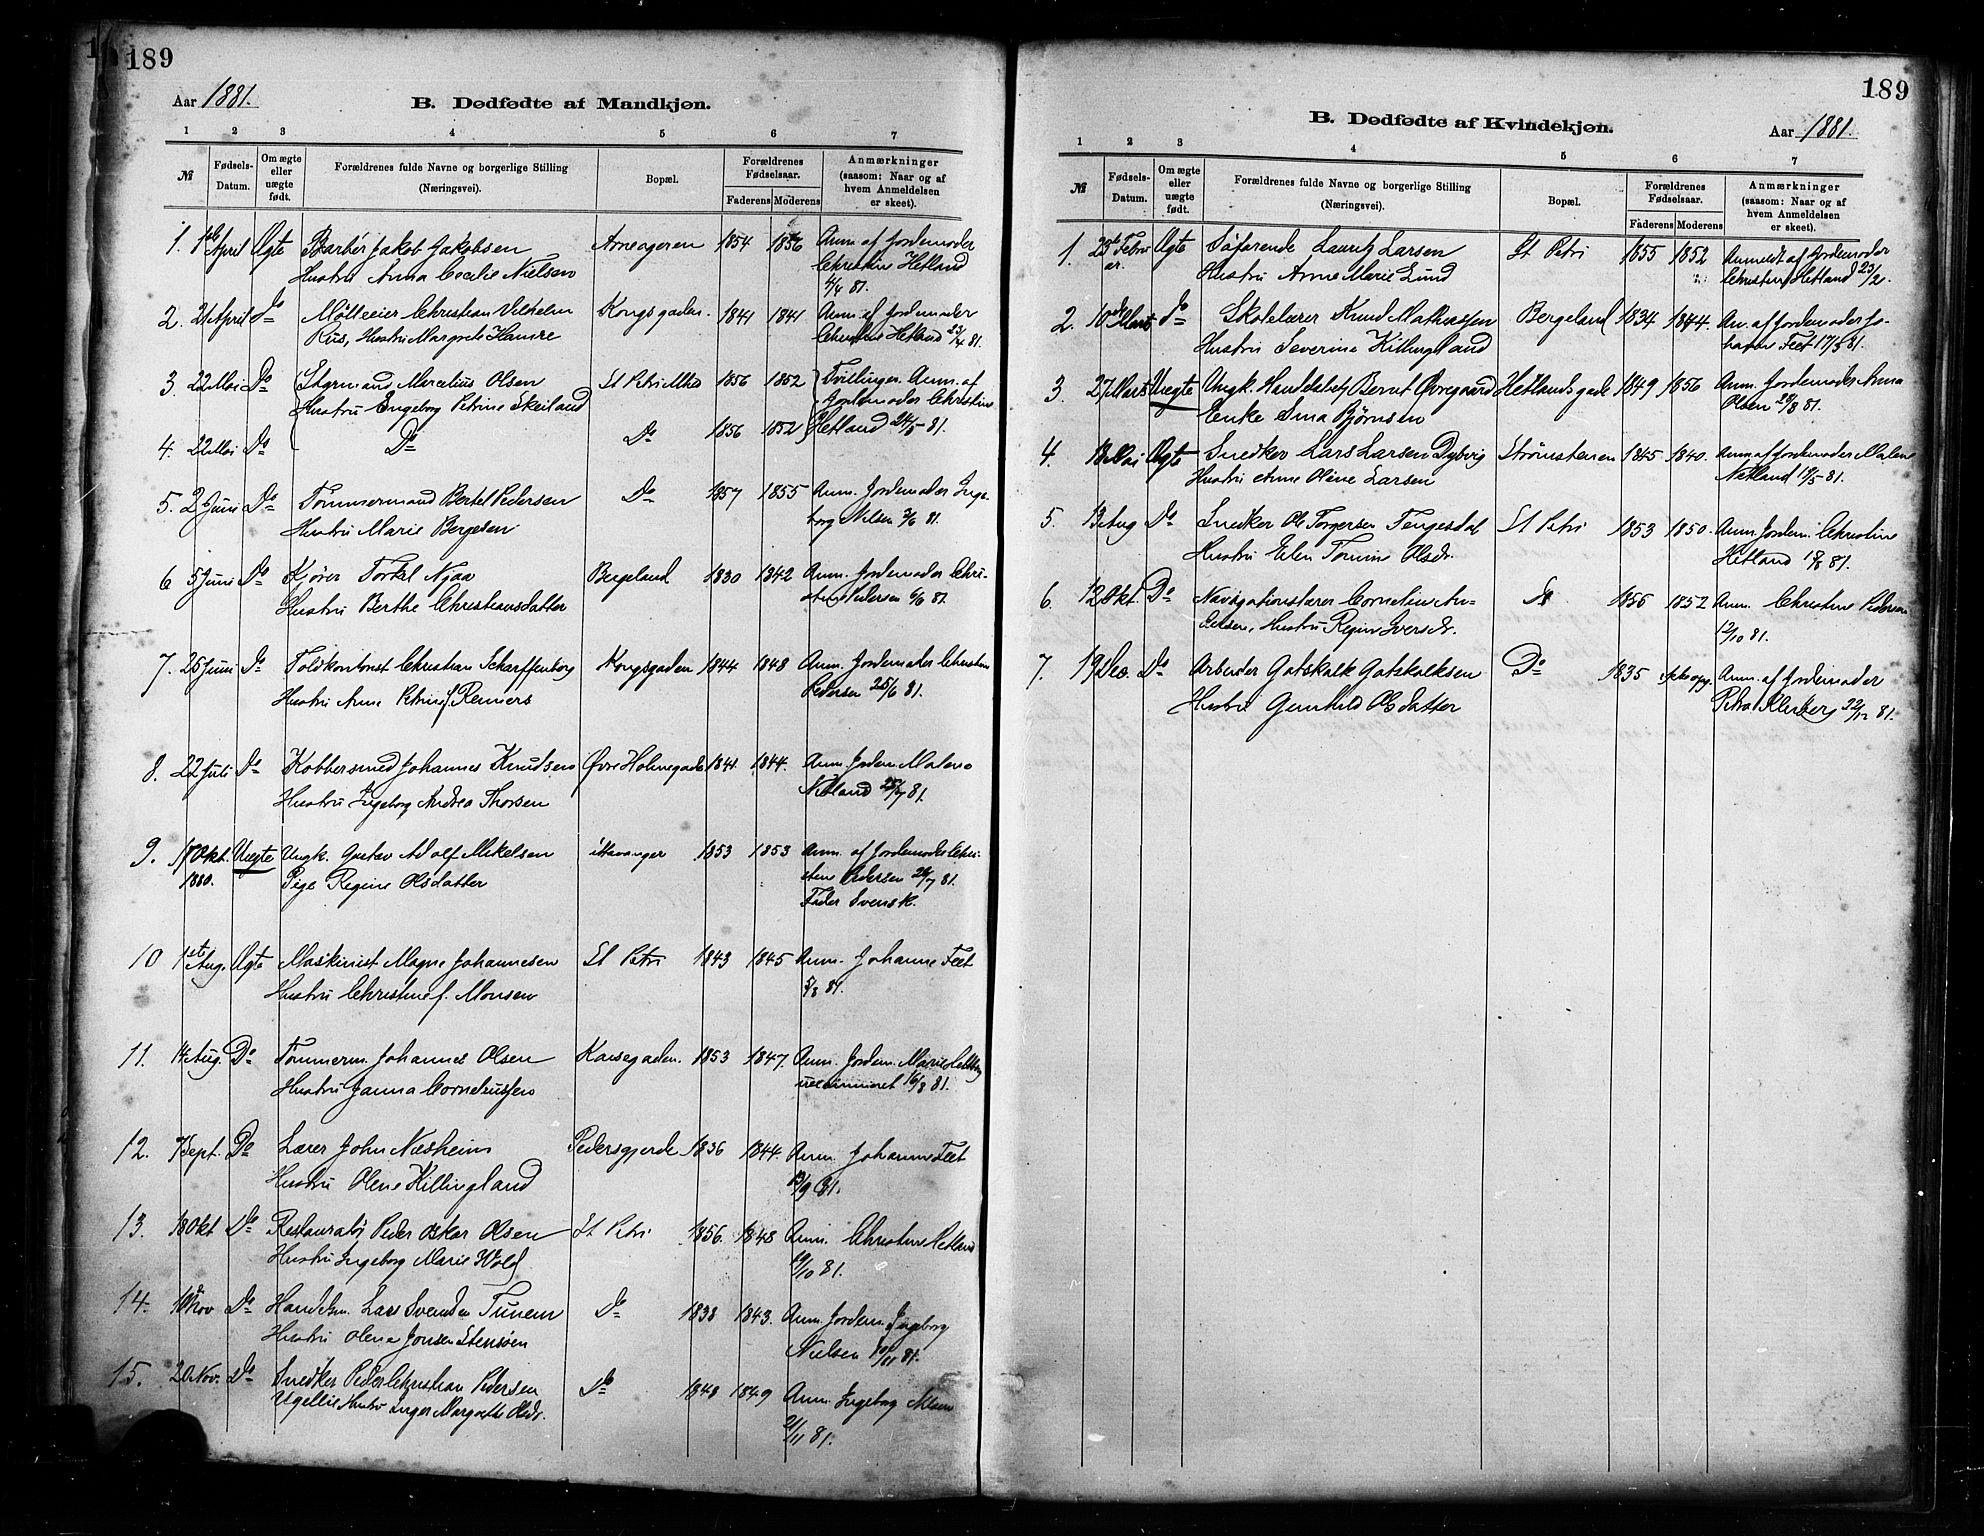 189
Aar 1881.
B. Dødfødte af Mandkjøn.
1 2 3 4 5 6 7
№
Fødsels-Datum.
Om ægte eller uægte født.
Forældrenes fulde Navne og borgerlige Stilling (Næringsvei).
Bopæl.
Forældrenes Fødselsaar.
Faderens Moderens
Anmærkninger (saasom: Naar og af hvem Anmeldelsen er skeet).
1. 1ste April Ægte Barbér Jakob Jakobsen Arneageren 1854 1856 Anm. af Jordemoder
Hustru Anna Cecilie Nielsen Christine Hetland
4/4 81.
2. 21 April Do Mølleeier Christian Vilhelm Kongsgaden 1841 1841 Anm. af Jordemoder
Riis, Hustru Margrete Hamre Christine Hetland 23/4 81.
3. 22 Mai Do Styrmand Marcelius Olsen St Petri 1856 1852 Tvillinger. Anm. af
Hustru Engeborg Petrine Skeiland Jordemoder Christine
4. 22 Mai Do Do Do 1856 1852 Hetland 24/5 81.
5. 2 Juni Do Tømmermand Bertel Pedersen Do 1857 1855 Anm. Jordemoder Inge-
Hustru Marie Bergesen borg Nilsen 3/6 81.
6 5 Juni Do Kjører Torkel Njaa Bergeland 1830 1842 Anm. Jordemoder Chri-
Hustru Berthe Christiansdatter stine Pedersen 6/6 81.
7. 25 Juni Do Toldkontorist Christian Scharffenberg Kongsgaden 1844 1848 Anm. Jordemoder Christine
Hustru Anne Petrine f. Reimers Pedersen 25/6 81.
8. 22 Juli Do Kobbersmed Johannes Knudsen Øvre Holmegade 1841. 1844. Anm. Jordm. Malene
Hustru Ingeborg Andrea Thorsen Netland 25/7 81.
9. 18 Okt. Uægte Ungk. Gustav Adolf Mikelsen Stavanger 1853 1853 Anm. af Jordemoder Chri-
1880. Pige Regine Olsdatter stine Pedersen 26/7 81.
Fader Svensk.
10 1ste Aug. Ægte Maskinist Magne Johannesen St Petri 1843 1845 Anm. Johanne Feet
Hustru Christine f. Monsen 5/8 81.
11. 14 Aug. Do Tømmerm. Johannes Olsen Karsegaden. 1853 1847. Anm. Jordem. Marie
Hustru Janna Corneliussen 16/8 81.
12. 7 Sept. Do Lærer John Næsheim Pedersgjerde 1836 1844. Anm. Johanne Feet
Hustru Olene Killingland 13/9 81.
13. 18 Okt Do Restauratør Peder Oskar Olsen St Petri 1856. 1848 Anm. Christine Hetland
Hustru Ingeborg Marie Wold 19/10 81.
14. 10 Nov Do Handelsm. Lars Svendsen Tunem Do 1838 1843. Anm. Jordem. Ingeborg
Hustru Olena Jonsen Stensøen Nielsen 10/11 81.
15. 20 Nov. Do Snedker Peder Christian Pedersen Do 1848 1849 Anm. Ingeborg Nilsen
Ugelliie Hustru Inger Margrethe Olsdr. 21/11 81.
189
B. Dødfødte af Kvindekjøn.
Aar 1881.
1 2 3 4 5 6 7
№
Fødsels-Datum.
Om ægte eller uægte født.
Forældrenes fulde Navne og borgerlige Stilling (Næringsvei).
Bopæl.
Forældrenes Fødselsaar.
Faderens Moderens
Anmærkninger (saasom: Naar og af hvem Anmeldelsen er skeet).
1. 23de Febru Ægte Søfarende Lauritz Larsen St Petri 1855 1852 Anmeldt af Jordemoder
ar. Hustru Anne Marie Lund Christine Hetland 23/2.
2. 10de Marts Do Skolelærer Knud Mathiassen Bergeland 1834 1844. An. af Jordemoder Jo-
Hustru Severine Killingland hanne Feet 17/3 81.
3. 27 Marts Uægte Ungk. Handelsbetj Bernt Øvregaard Hetlandsgade 1849 1856 Anm. Jordemoder Anna
Enke Ema Bjørnsen Olsen 29/3 81.
4. 18 Mai Ægte Snedker Lars Larsen Dybvig Strømstenen 1845 1840. Anm. af Jordemoder Malene
Hustru Anne Oline Larsen Netland 19/5 81.
5. 13 Aug Do Snedker Ole Torgersen Tengesdal St Petri 1853 1850. Anm. Jordem. Christine
Hustru Elen Tomine Olsdr. Hetland 18/8 81.
6. 12 Okt. Do Navigationslærer Cornelius An- Do 1856 1852 Anm. Christine Pedersen
delsen, Hustru Regine Iversdr. 12/10 81.
7. 19 Dec. Do Arbeider Gotskalk Gotskalksen Do 1835 ikke opg. Anm. af Jordemoder
Hustru Gunhild Olsdatter Petra Kleiberg 22/12 81.